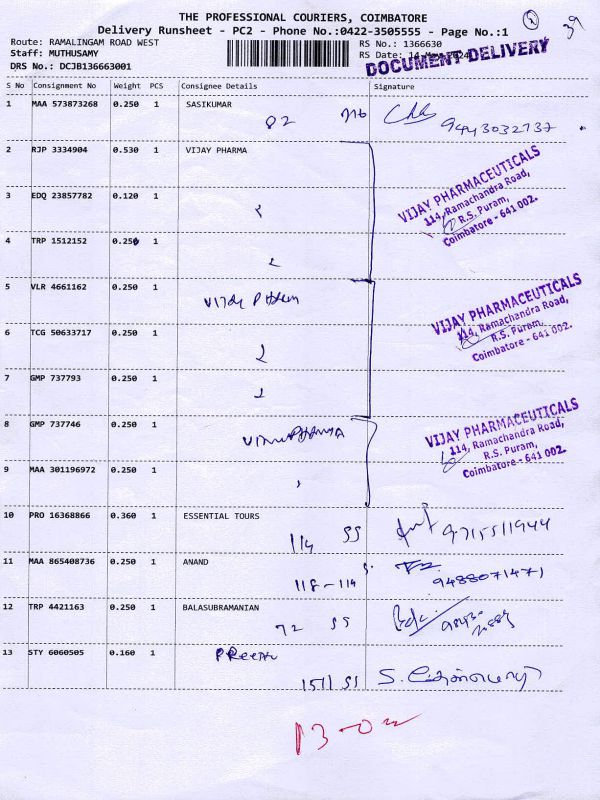 THE PROFESSIONAL COURIERS, COIMBATORE
Delivery Runsheet - PC2 - Phone No.:0422-3505555 - Page No.:1
Route: RAMALINGAM ROAD WEST
Staff: MUTHUSAMY
DRS No.: DCJB136663001
RS No.: 1366630
RS Date: 14-May-2024
DOCUMENT DELIVERY
39
S No Consignment No Weight PCS Consignee Details Signature
1 MAA 573873268 0.250 1 SASIKUMAR
82 9443032737
2 RJP 3334904 0.530 1 VIJAY PHARMA
3 EDQ 23857782 0.120 1
4 TRP 1512152 0.250 1
VIJAY PHARMACEUTICALS
114, Ramachandra Road,
R.S. Puram,
Coimbatore - 641 002.
5 VLR 4661162 0.250 1
6 TCG 50633717 0.250 1
7 GMP 737793 0.250 1
VIJAY PHARMACEUTICALS
114, Ramachandra Road,
R.S. Puram,
Coimbatore - 641 002.
8 GMP 737746 0.250 1
9 MAA 301196972 0.250 1
VIJAY PHARMACEUTICALS
114, Ramachandra Road,
R.S. Puram,
Coimbatore - 641 002.
10 PRO 16368866 0.360 1 ESSENTIAL TOURS
114 SS 9715511944
11 MAA 865408736 0.250 1 ANAND
118-114 9488071471
12 TRP 4421163 0.250 1 BALASUBRAMANIAN
72 SS
13 STY 6060505 0.160 1 PReethi
151 SS